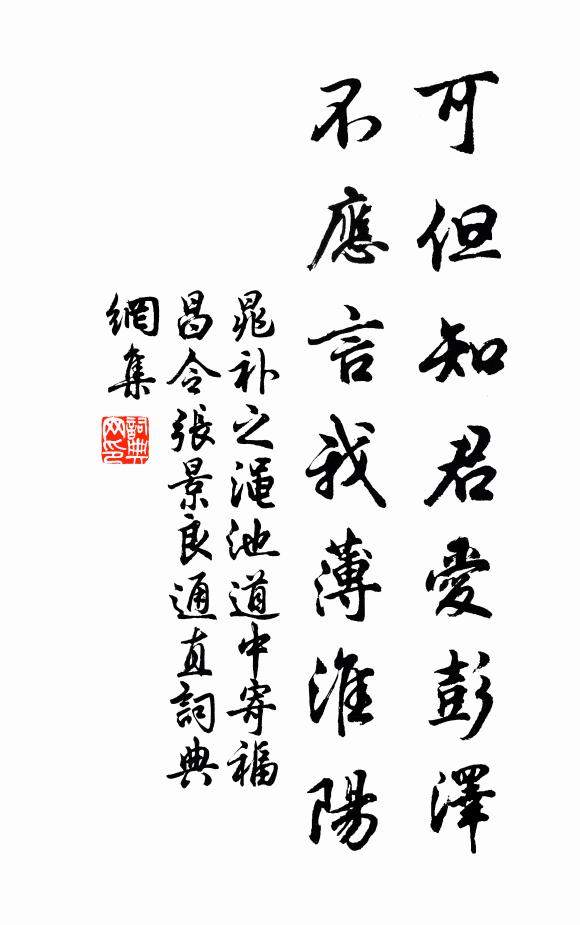 可但知君愛彭澤
不應言我薄淮陽
晁补之澠池道中寄福
昌令張景良通直詞典
網集
詞典網印